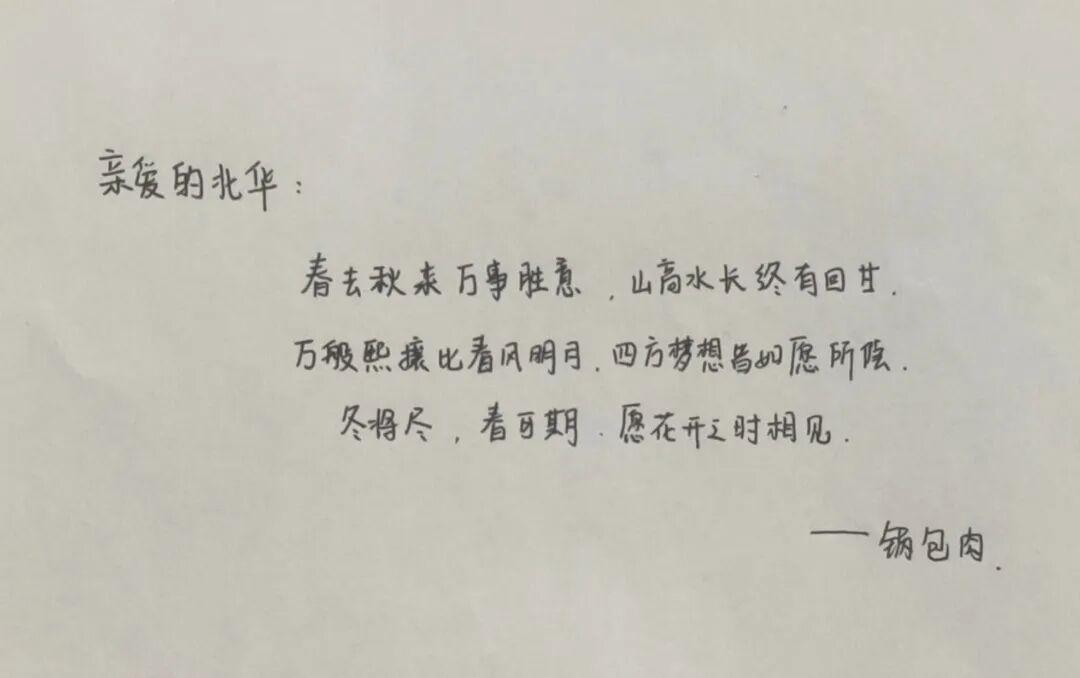 亲爱的北华:
春去秋来万事胜意,山高水长终有回甘.
万般熙攘比春风明月.四方梦想皆如愿所偿.
冬将尽,春可期.愿花开之时相见.
——锅包肉.